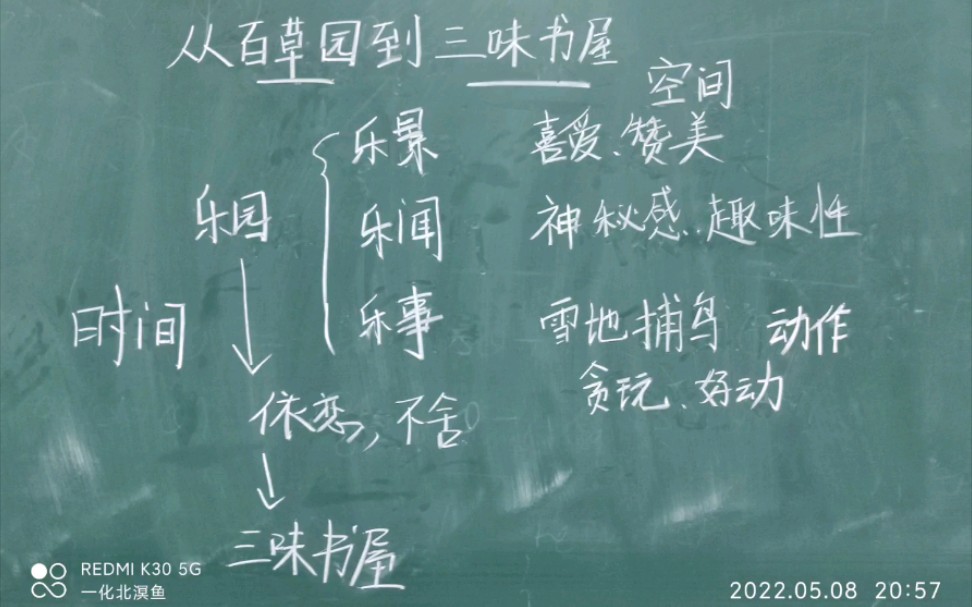 从百草园到三味书屋
空间
乐景 喜爱、赞美
乐园
乐闻 神秘感、趣味性
时间
乐事 雪地捕鸟 动作
贪玩、好动
依恋,不舍
三味书屋
REDMI K30 5G
一化北溟鱼
2022.05.08 20:57